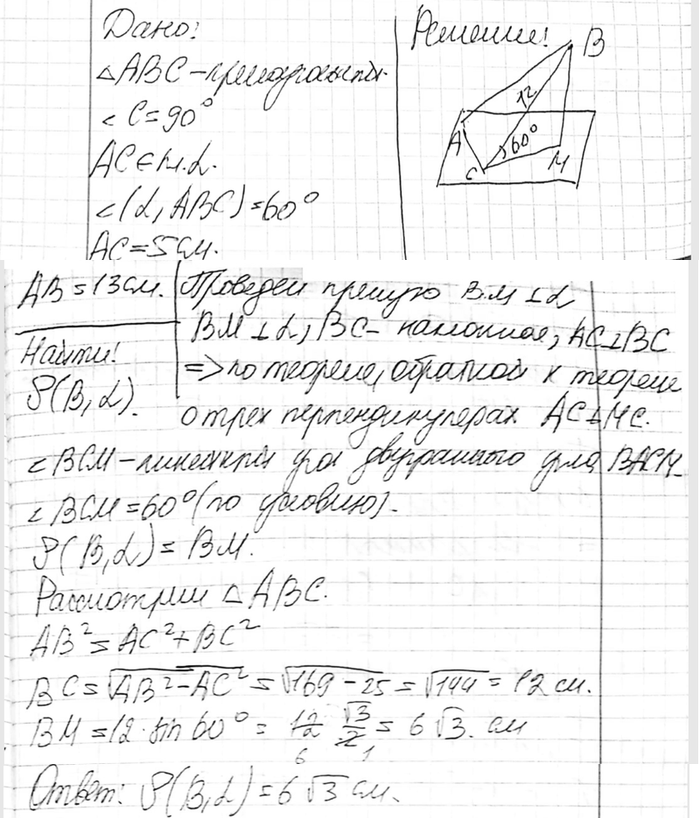 Дано:
△ABC – прямоугольный.
∠ C = 90°
AC ∈ α.
∠(α, ABC) = 60°
AC = 5 см.
AB = 13 см.
Найти:
ρ(B, α).
Решение:
B
12
A
60°
C
M
Проведем прямую BM ⊥ α
BM ⊥ α, BC – наклонная, AC ⊥ BC
=> по теореме, обратной к теореме
о трех перпендикулярах AC ⊥ MC.
∠BCM – линейный угол двугранного угла BACM
∠BCM = 60° (по условию).
ρ(B, α) = BM.
Рассмотрим △ABC.
AB² = AC² + BC²
BC = √AB² – AC² = √169 – 25 = √144 = 12 см.
BM = 12 · sin 60° = 12 √3/2 = 6√3 см
6 1
Ответ: ρ(B, α) = 6√3 см.